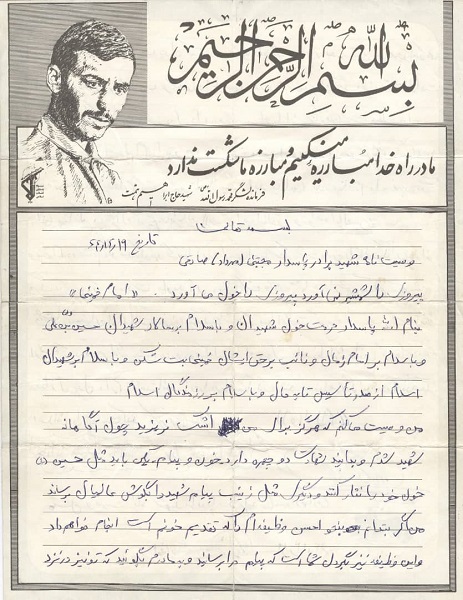 بسم الله الرحمن الرحیم
ما در راه خدا مبارزه میکنیم و مبارزه ما شکست ندارد
فرمانده لشگر محمد رسول الله شهید حاج ابراهیم همت
بسمه تعالی
تاریخ
وصیت نامه شهید برادر پاسدار مجتبی صادقی
پیروزی را شمشیر نمی آورد پیروزی را خون می آورد . «امام خمینی»
بنام الله پاسدار حرمت خون شهیدان و با سلام بر سالار شهیدان حسین بن علی
و با سلام بر امام زمان و نائب بر حق ایشان خمینی بت شکن و با سلام بر شهیدان
اسلام از صدر تا کنون و با سلام بر رزمندگان اسلام
من وصیت میکنم که هرگز برای من اشک نریزید چون آگاهانه
شهید شدم و بدانید شهادت دو چهره دارد خون و پیام یکی باید مثل حسین
خون خود را نثار کند و دیگری مثل زینب پیام شهید را بگوش عالمیان برساند
من اگر بتوانم بنحو احسن وظیفه ام را که تقدیم خونم است انجام خواهم داد
و این وظیفه نیز بگردن شما است که پیام مرا برسانید و به مادرم بگوئید که تو نیز در نزد